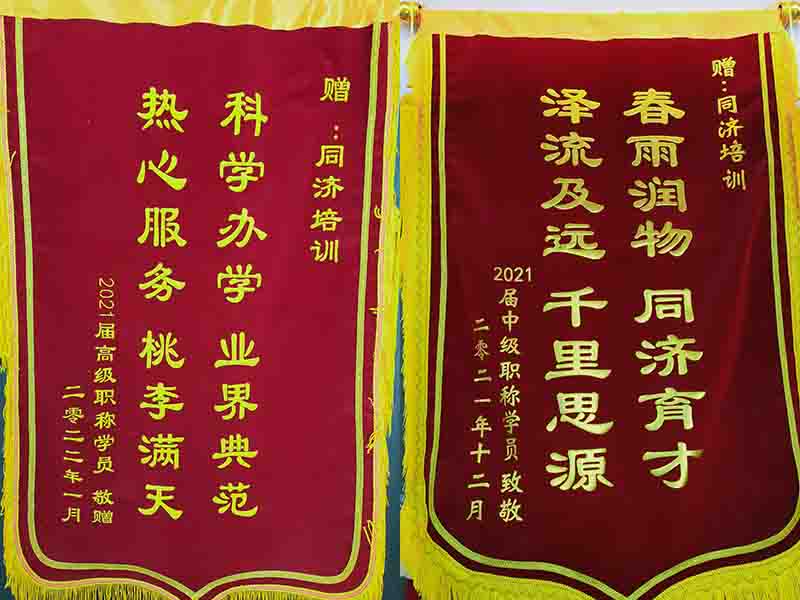 赠：同济培训
科学办学 业界典范
热心服务 桃李满天
2021届高级职称学员 敬赠
二零二二年一月
赠：同济培训
春雨润物 同济育才
泽流及远 千里思源
2021届中级职称学员 致敬
二零二一年十二月